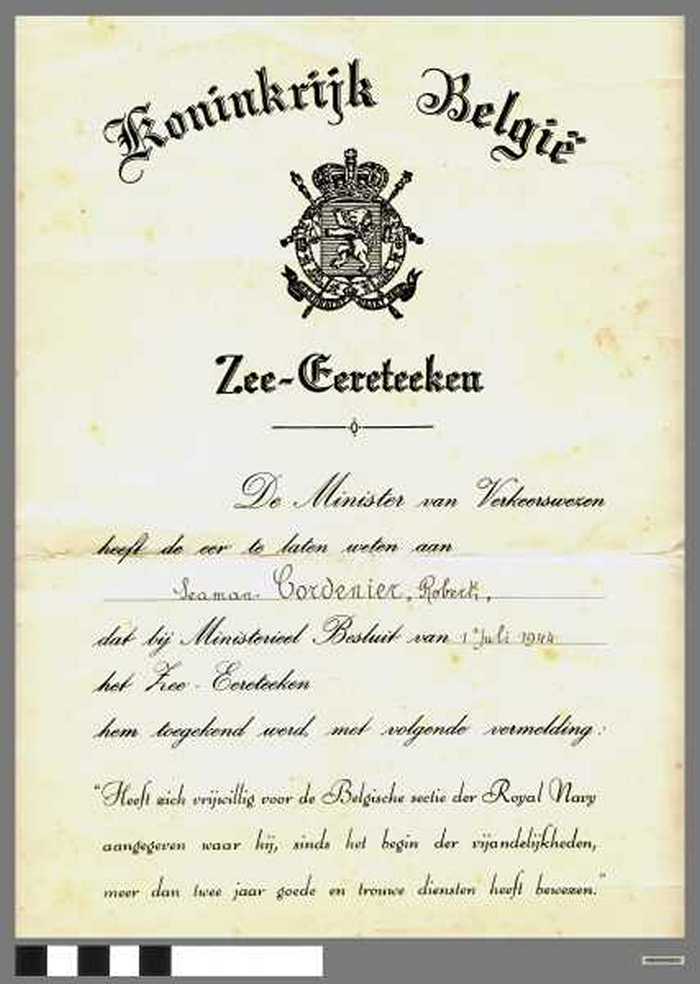 Koninkrijk België
Zee-Eereteeken
De Minister van Verkeerswezen
heeft de eer te laten weten aan
Seaman Cordenier, Robert,
dat bij Ministerieel Besluit van 1 Juli 1944
het Zee-Eereteeken
hem toegekend werd, met volgende vermelding:
"Heeft zich vrijwillig voor de Belgische sectie der Royal Navy
aangegeven waar hij, sinds het begin der vijandelijkheden,
meer dan twee jaar goede en trouwe diensten heeft bewezen."